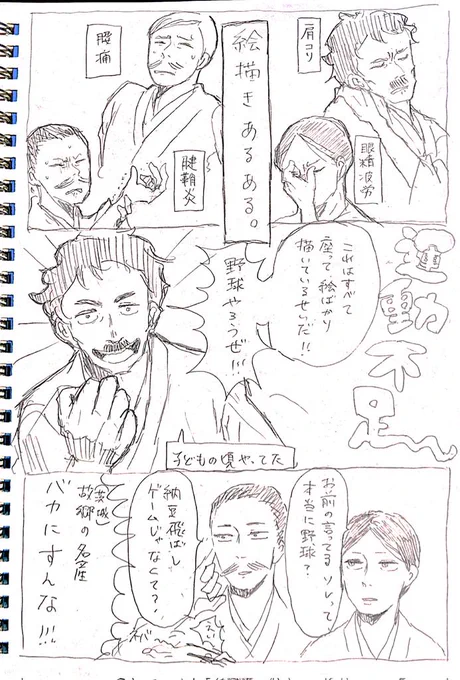 絵描きあるある。
肩コリ
眼精疲労
腰痛
腱鞘炎
運動不足
これはすべて
座って絵ばかり
描いているせいだ!!
野球やろうぜ!!!
子どもの頃やってた
お前の言ってるソレって
本当に野球?
納豆飛ばし
ゲームじゃなくて?
(茨城)
故郷の名産
バカにすんな!!!